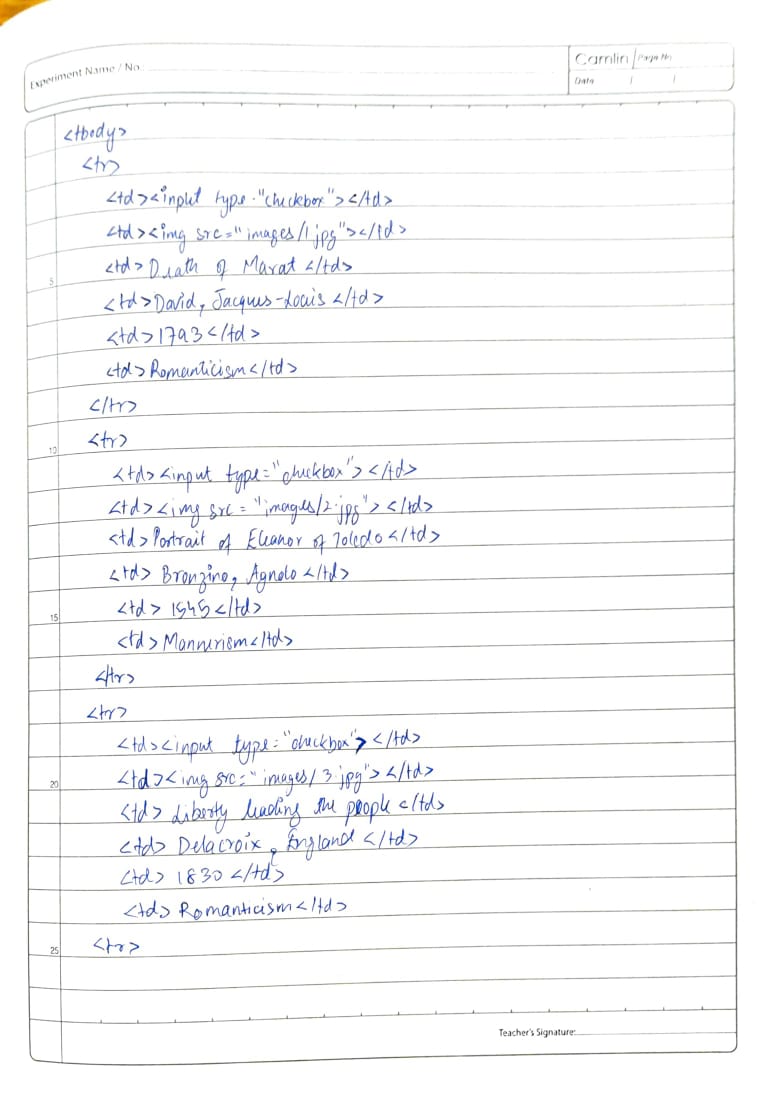 Experiment Name / No.:
Camlin Page No.
Date / /
<tbody>
<tr>
<td><input type="checkbox"></td>
<td><img src="images/1.jpg"></td>
<td>Death of Marat </td>
5
<td>David, Jacques-Louis </td>
<td>1793</td>
<td>Romanticism</td>
</tr>
10 <tr>
<td><input type="checkbox"></td>
<td><img src = "images/2.jpg"> </td>
<td>Portrait of Eleanor of Toledo </td>
<td> Bronzino, Agnolo </td>
15 <td> 1545 </td>
<td> Mannerism</td>
</tr>
<tr>
<td><input type="checkbox"> </td>
20 <td><img src="images/3.jpg"> </td>
<td> Liberty leading the people </td>
<td> Delacroix, England </td>
<td> 1830 </td>
<td> Romanticism </td>
25 <tr>
Teacher's Signature: